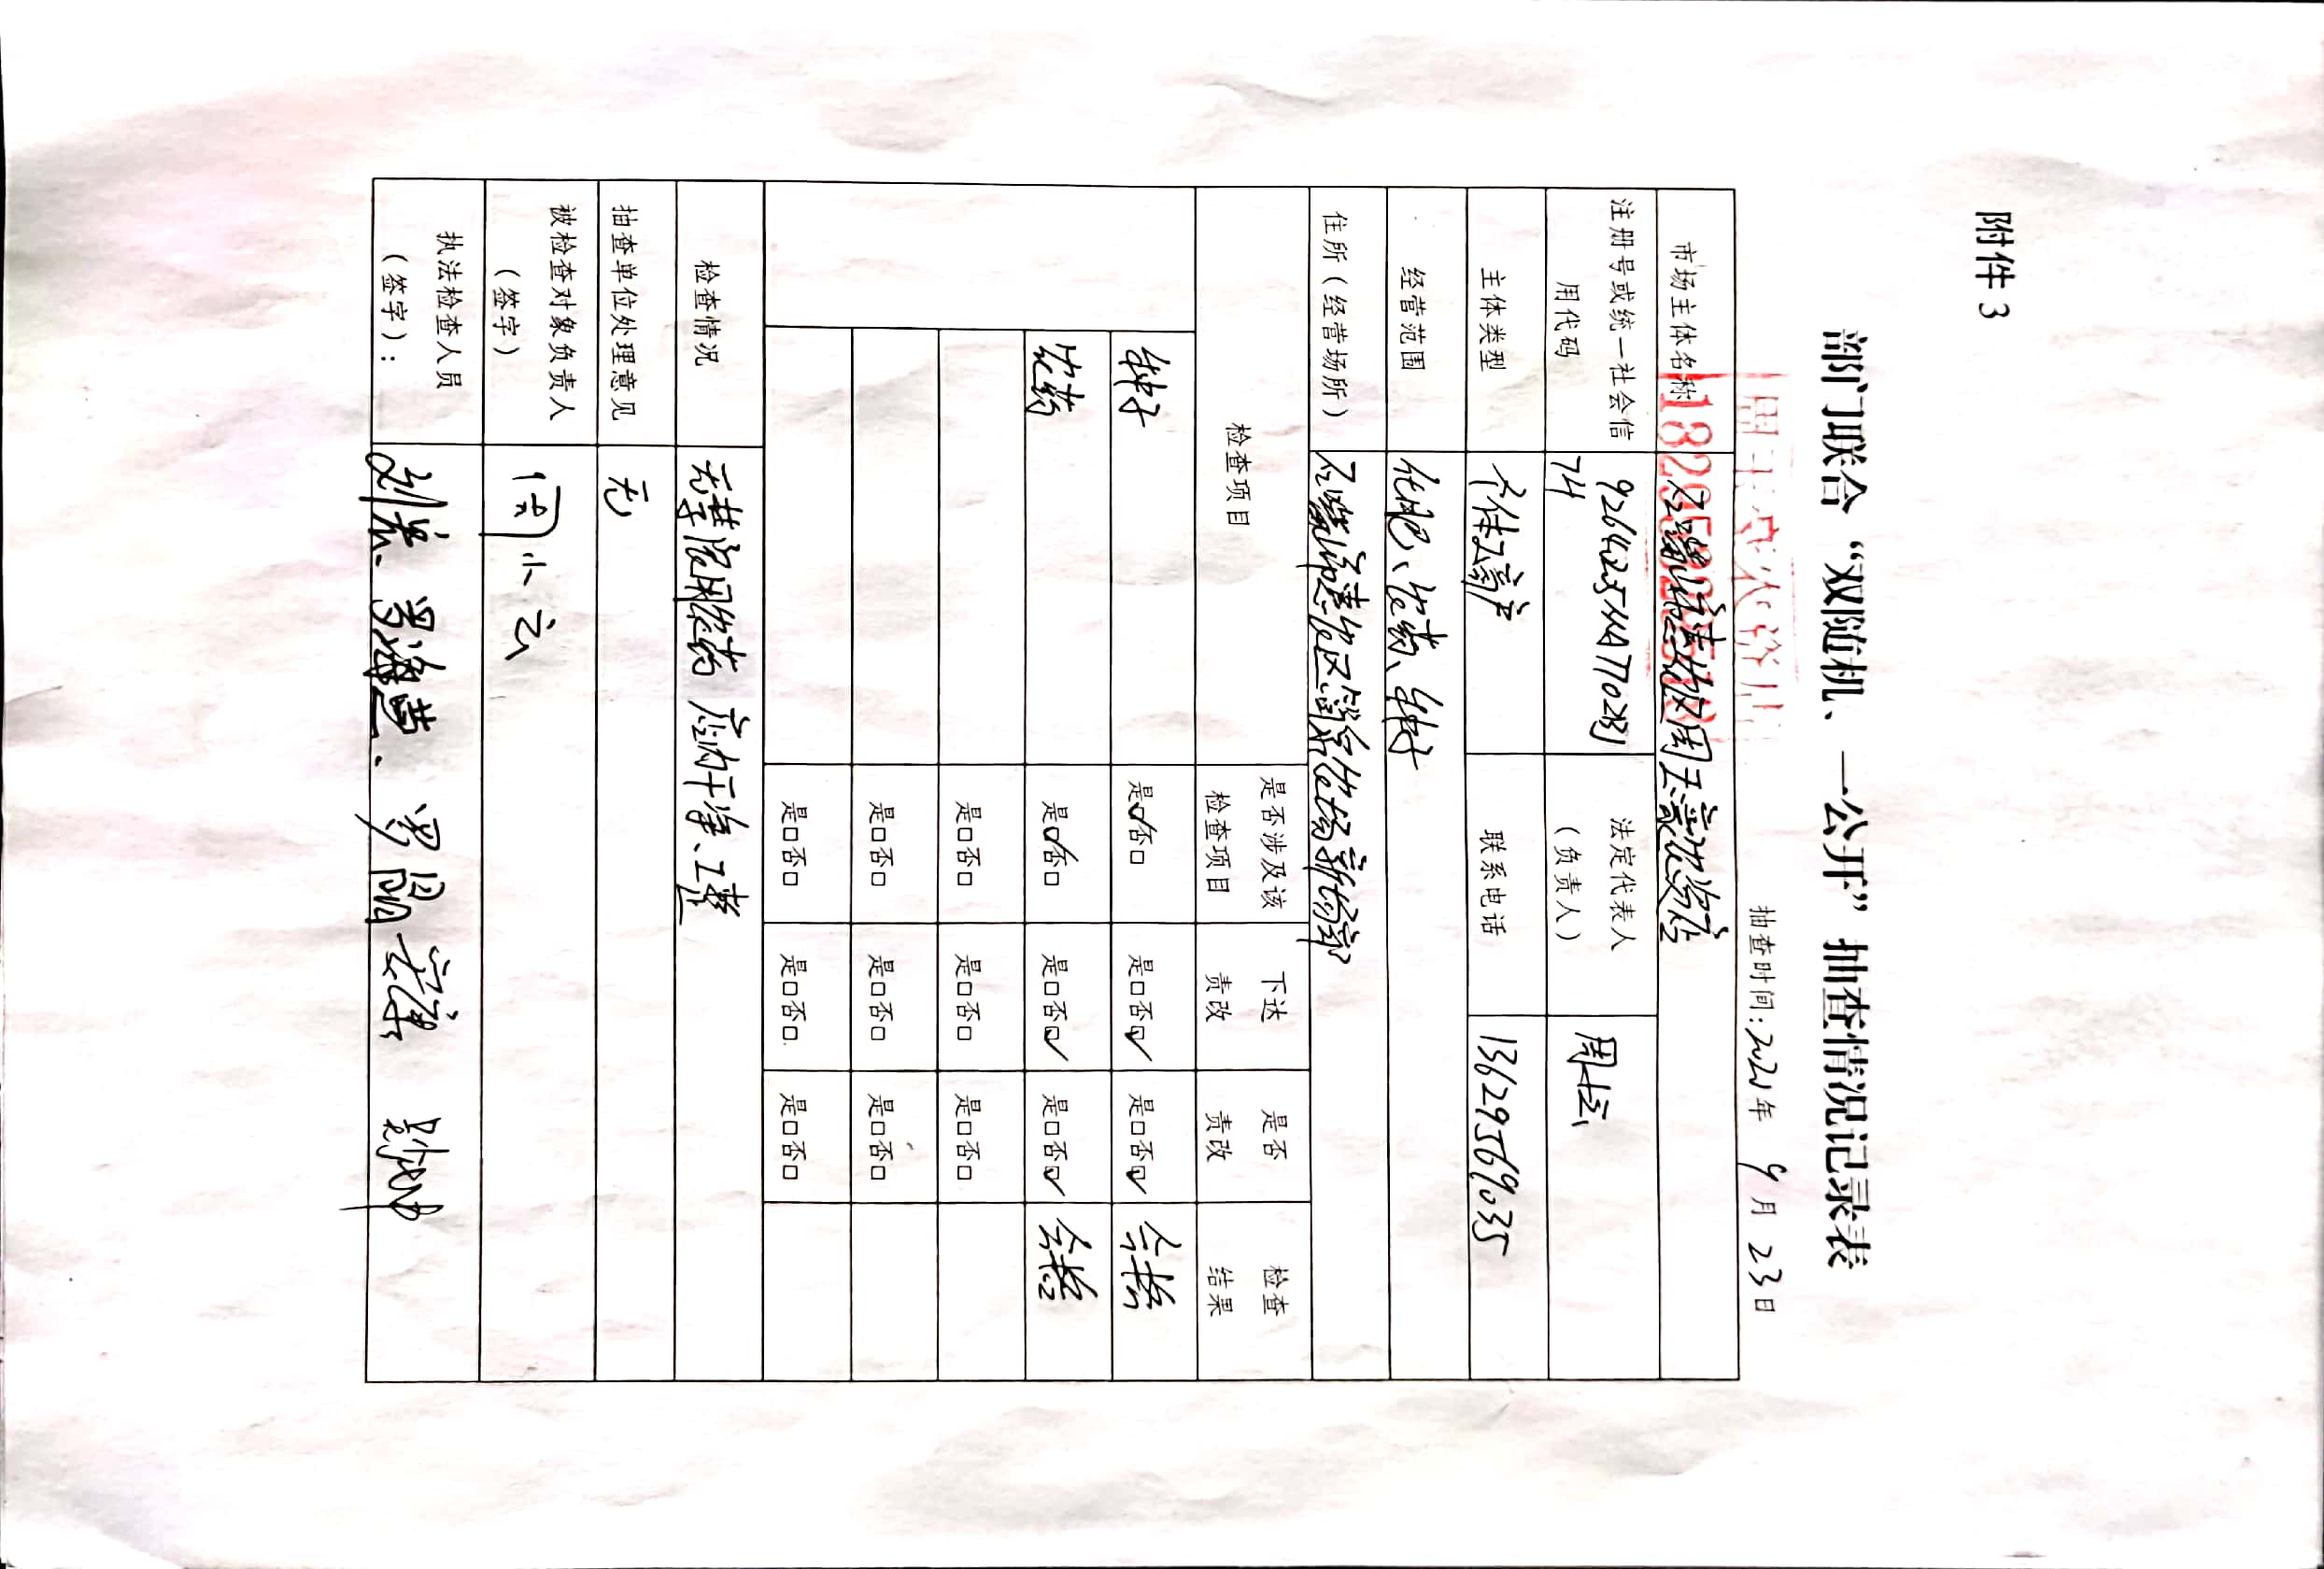 附件 3
部门联合“双随机、一公开”抽查情况记录表
抽查时间：2021年 9月 23日
市场主体名称
注册号或统一社会信用代码 92641225MA77028J74 法定代表人（负责人） 周小云
主体类型 个体工商户 联系电话 13629569035
经营范围 化肥、农药、种子
住所（经营场所）
检查项目 是否涉及该检查项目 下达责改 是否责改 检查结果
种子 是☑否□ 是□否☑ 是□否☑ 合格
农药 是☑否□ 是□否☑ 是□否☑ 合格
是□否□ 是□否□ 是□否□
是□否□ 是□否□ 是□否□
是□否□ 是□否□ 是□否□
检查情况 无禁限用农药 店内干净、工整
抽查单位处理意见 无
被检查对象负责人（签字） 周小云
执法检查人员（签字）：